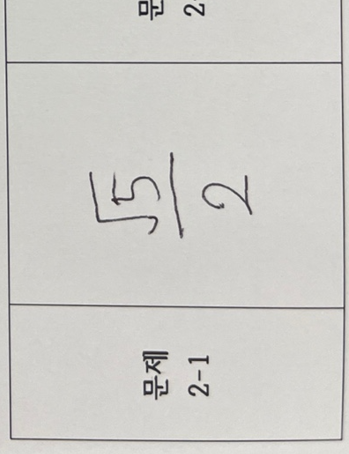 문제
2-1
√5/2
문
2